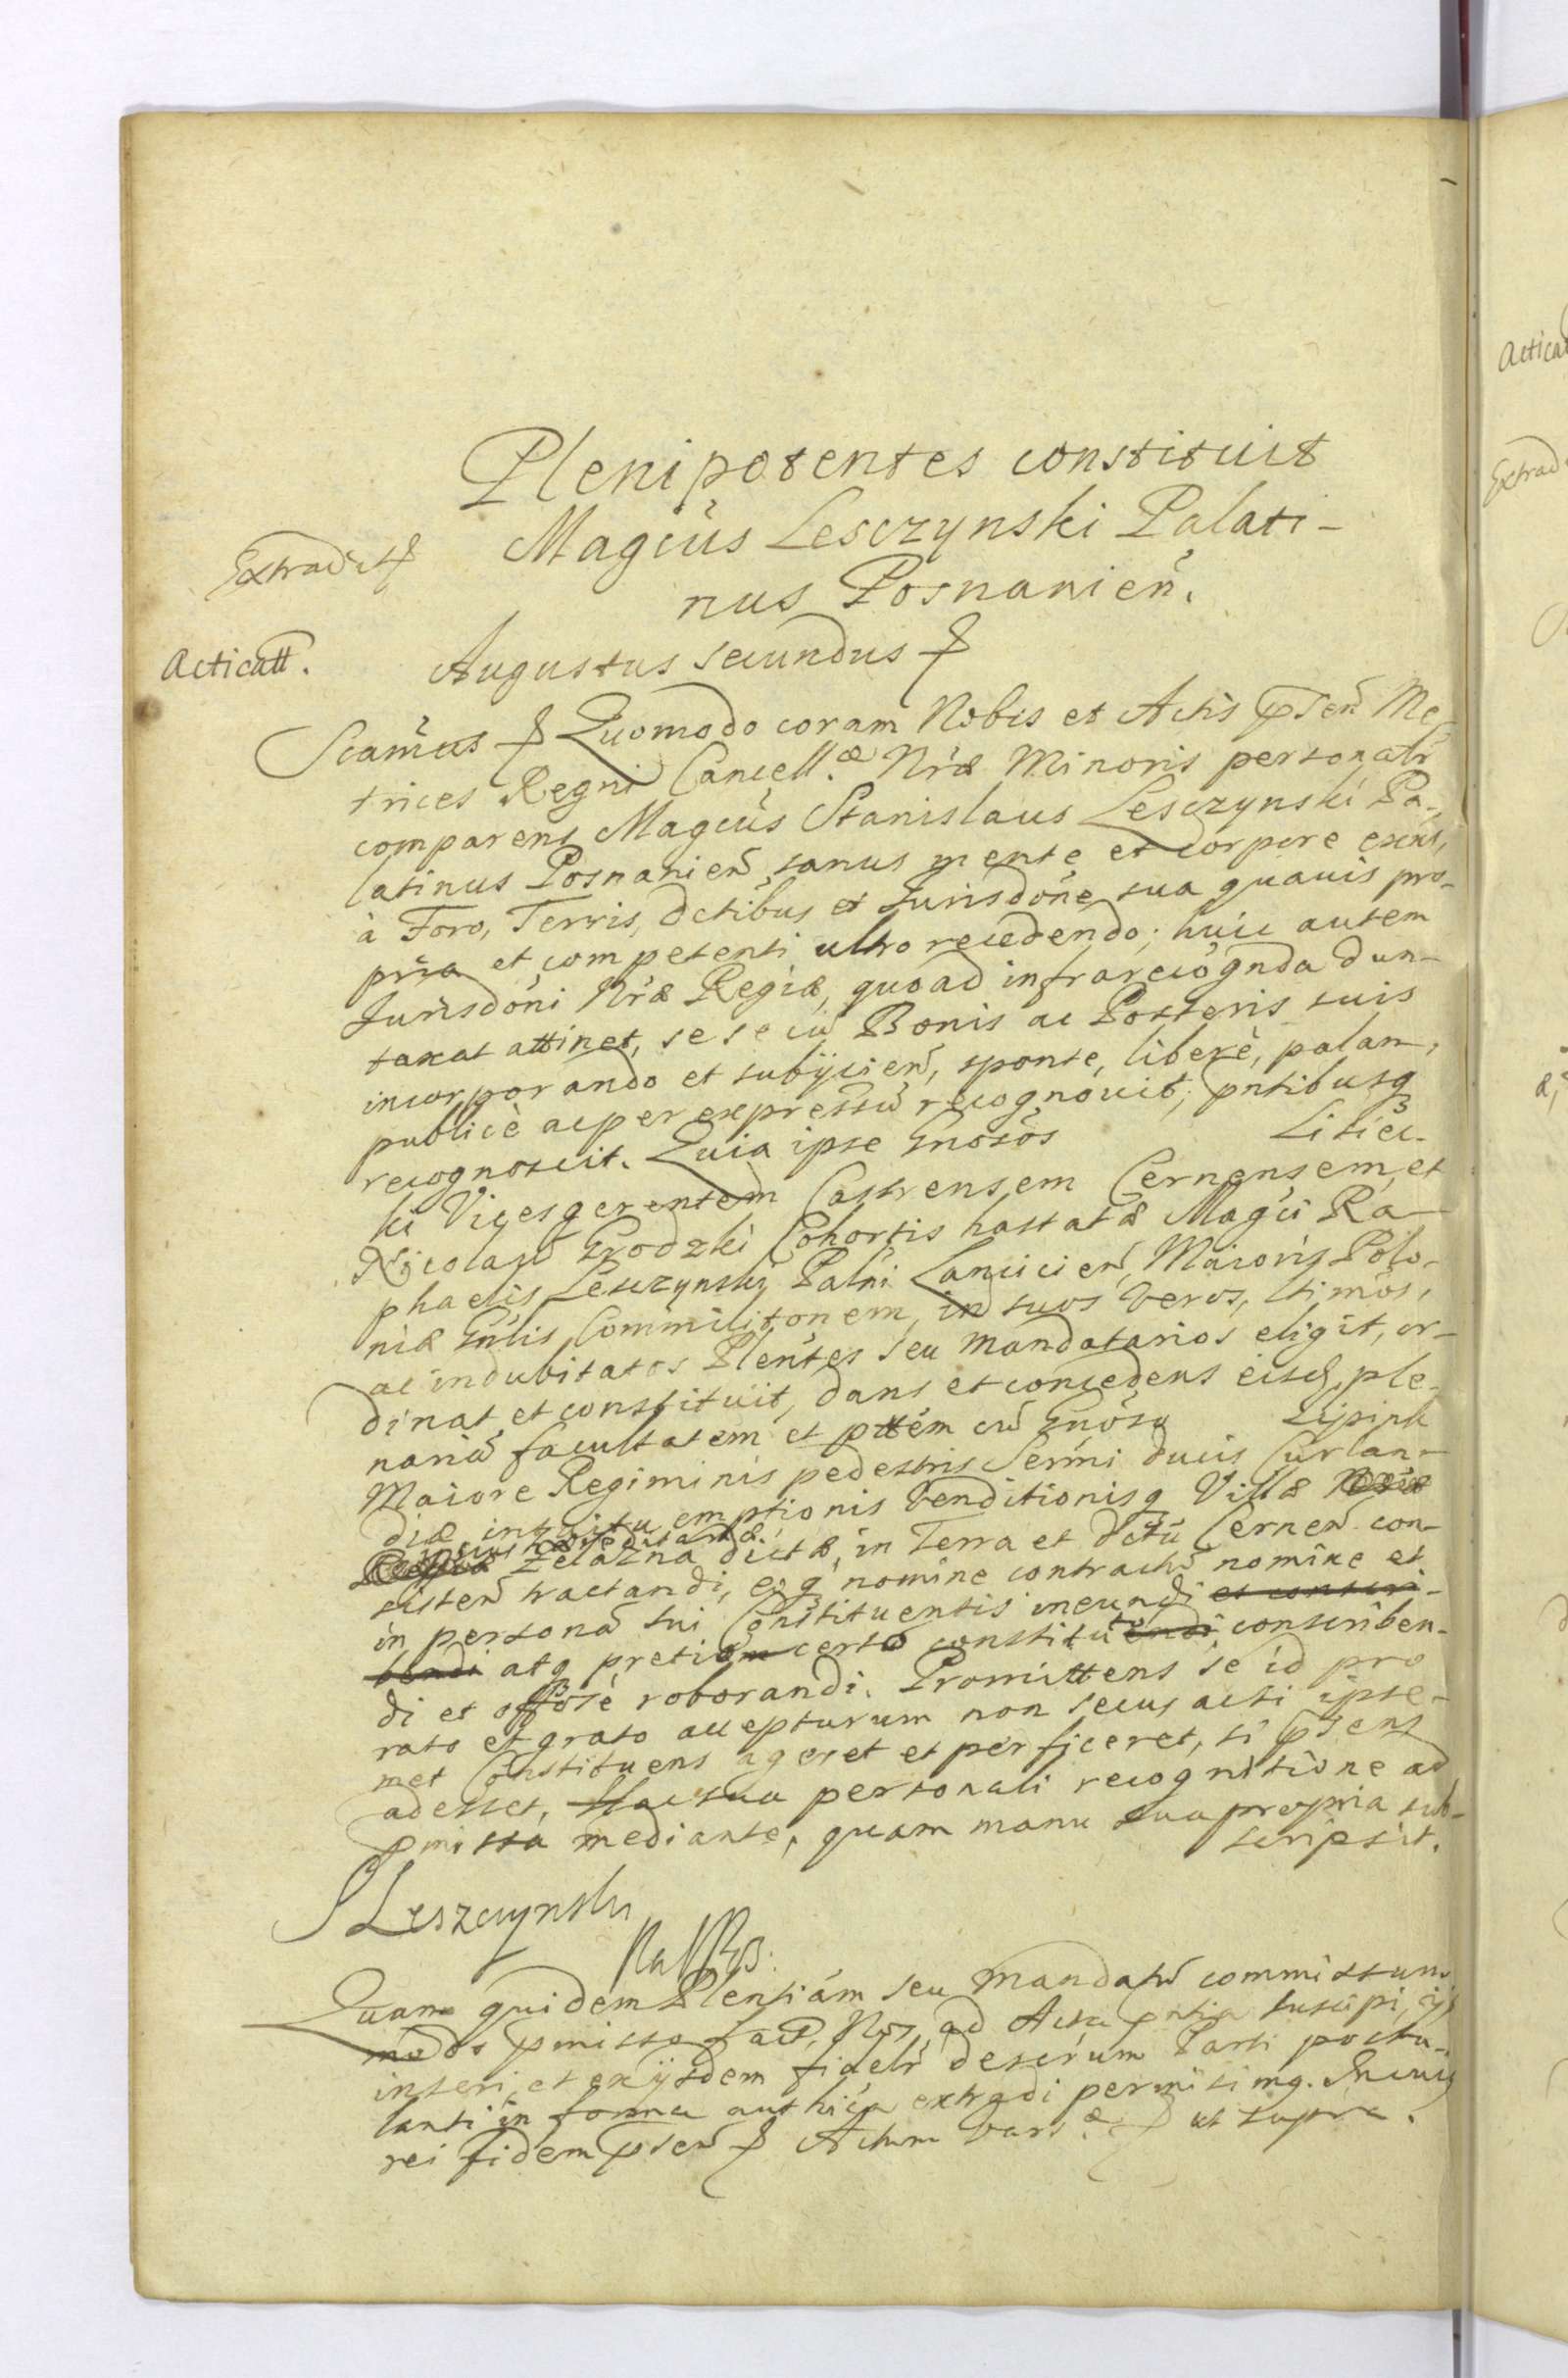 Plenipotentes constituit
Magcus Lesczynski Palati-
nus Posnanien.
Extradit
Acticatt.
Augustus secundus
Scamus Quomodo coram Nobis et Actis psen Me-
trices Regni Cancellæ Nræ Minoris personalr
comparens Magcus Stanislaus Lesczynski Pa-
latinus Posnanien sanus mente et corpore exens,
à Foro, Terris, dctibus et Jurisdone sua quavis pro-
pria et competenti ultro recedendo; huic autem
Jurisdoni Nræ Regiæ, quoad infrarecognda dun-
taxat attinet, sese cu Bonis ac Posteris suis
incorporando et subijcien, sponte, liberè, palam,
publicè ac per expressu recognovit, pntibusq
recognoscit. Quia ipse Gnosos Lisiec-
ki Vicesgerentem Castrensem Cernensem, et
Nicolau Grodzki Cohortis hastatæ Magci Ra-
phaelis Lesczynski Palni Lancicien, Maioris Polo-
niæ Gnlis, Commilitonem, in suos veros, ltimos,
ac indubitatos Plentes seu mandatarios eligit, or-
dinat, et constituit, dans et concedens eisd ple-
nariu facultatem et pttem cu Gnoso Lipink
Maiore Regiminis pedestris Sermi ducis Curlan-
diæ intuitu emptionis venditionisq Villæ
Zelazna dictæ, in Terra et dctu Cernen con-
sisten tractandi, eoq nomine contractu nomine et
in persona sui Constituentis ineundi et conscri-
bendi atq pretio certo constituendi, conscriben-
di et offose roborandi. Promittens se id pro
rato et grato accepturum non secus acsi ipse-
met Constituens ageret et perficeret, si psens
adesset, Hac sua personali recognitione ad
pmissa mediante, quam manu sua propria sub-
scripsit.
SLeszczynski
Quam quidem Plentiam seu mandatu commissum
modo pmisso fact, Nos, ad Acta pntia suscipi, ijs
inseri, et exijsdem fidelr descrum Parti postu-
lanti in forma authica extradi permisimq. In cuius
rei fidem psen Actum Varsæ ut supra.
Acticat
Extrad